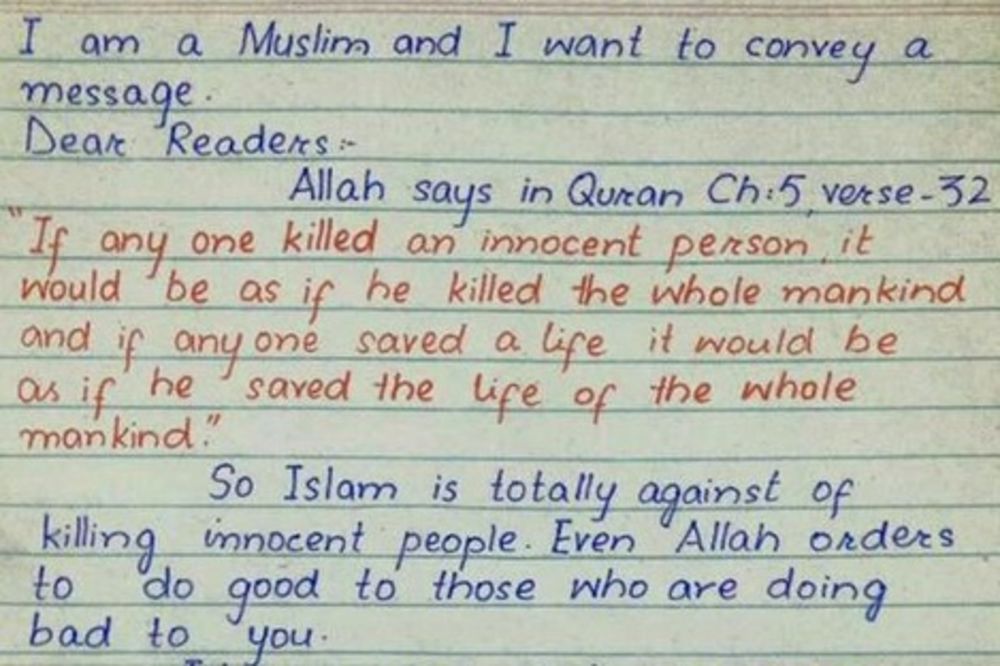 I am a Muslim and I want to convey a
message.
Dear Readers:-
Allah says in Quran Ch:5, verse-32
"If any one killed an innocent person, it
would be as if he killed the whole mankind
and if any one saved a life it would be
as if he saved the life of the whole
mankind."
So Islam is totally against of
killing innocent people. Even Allah orders
to do good to those who are doing
bad to you.